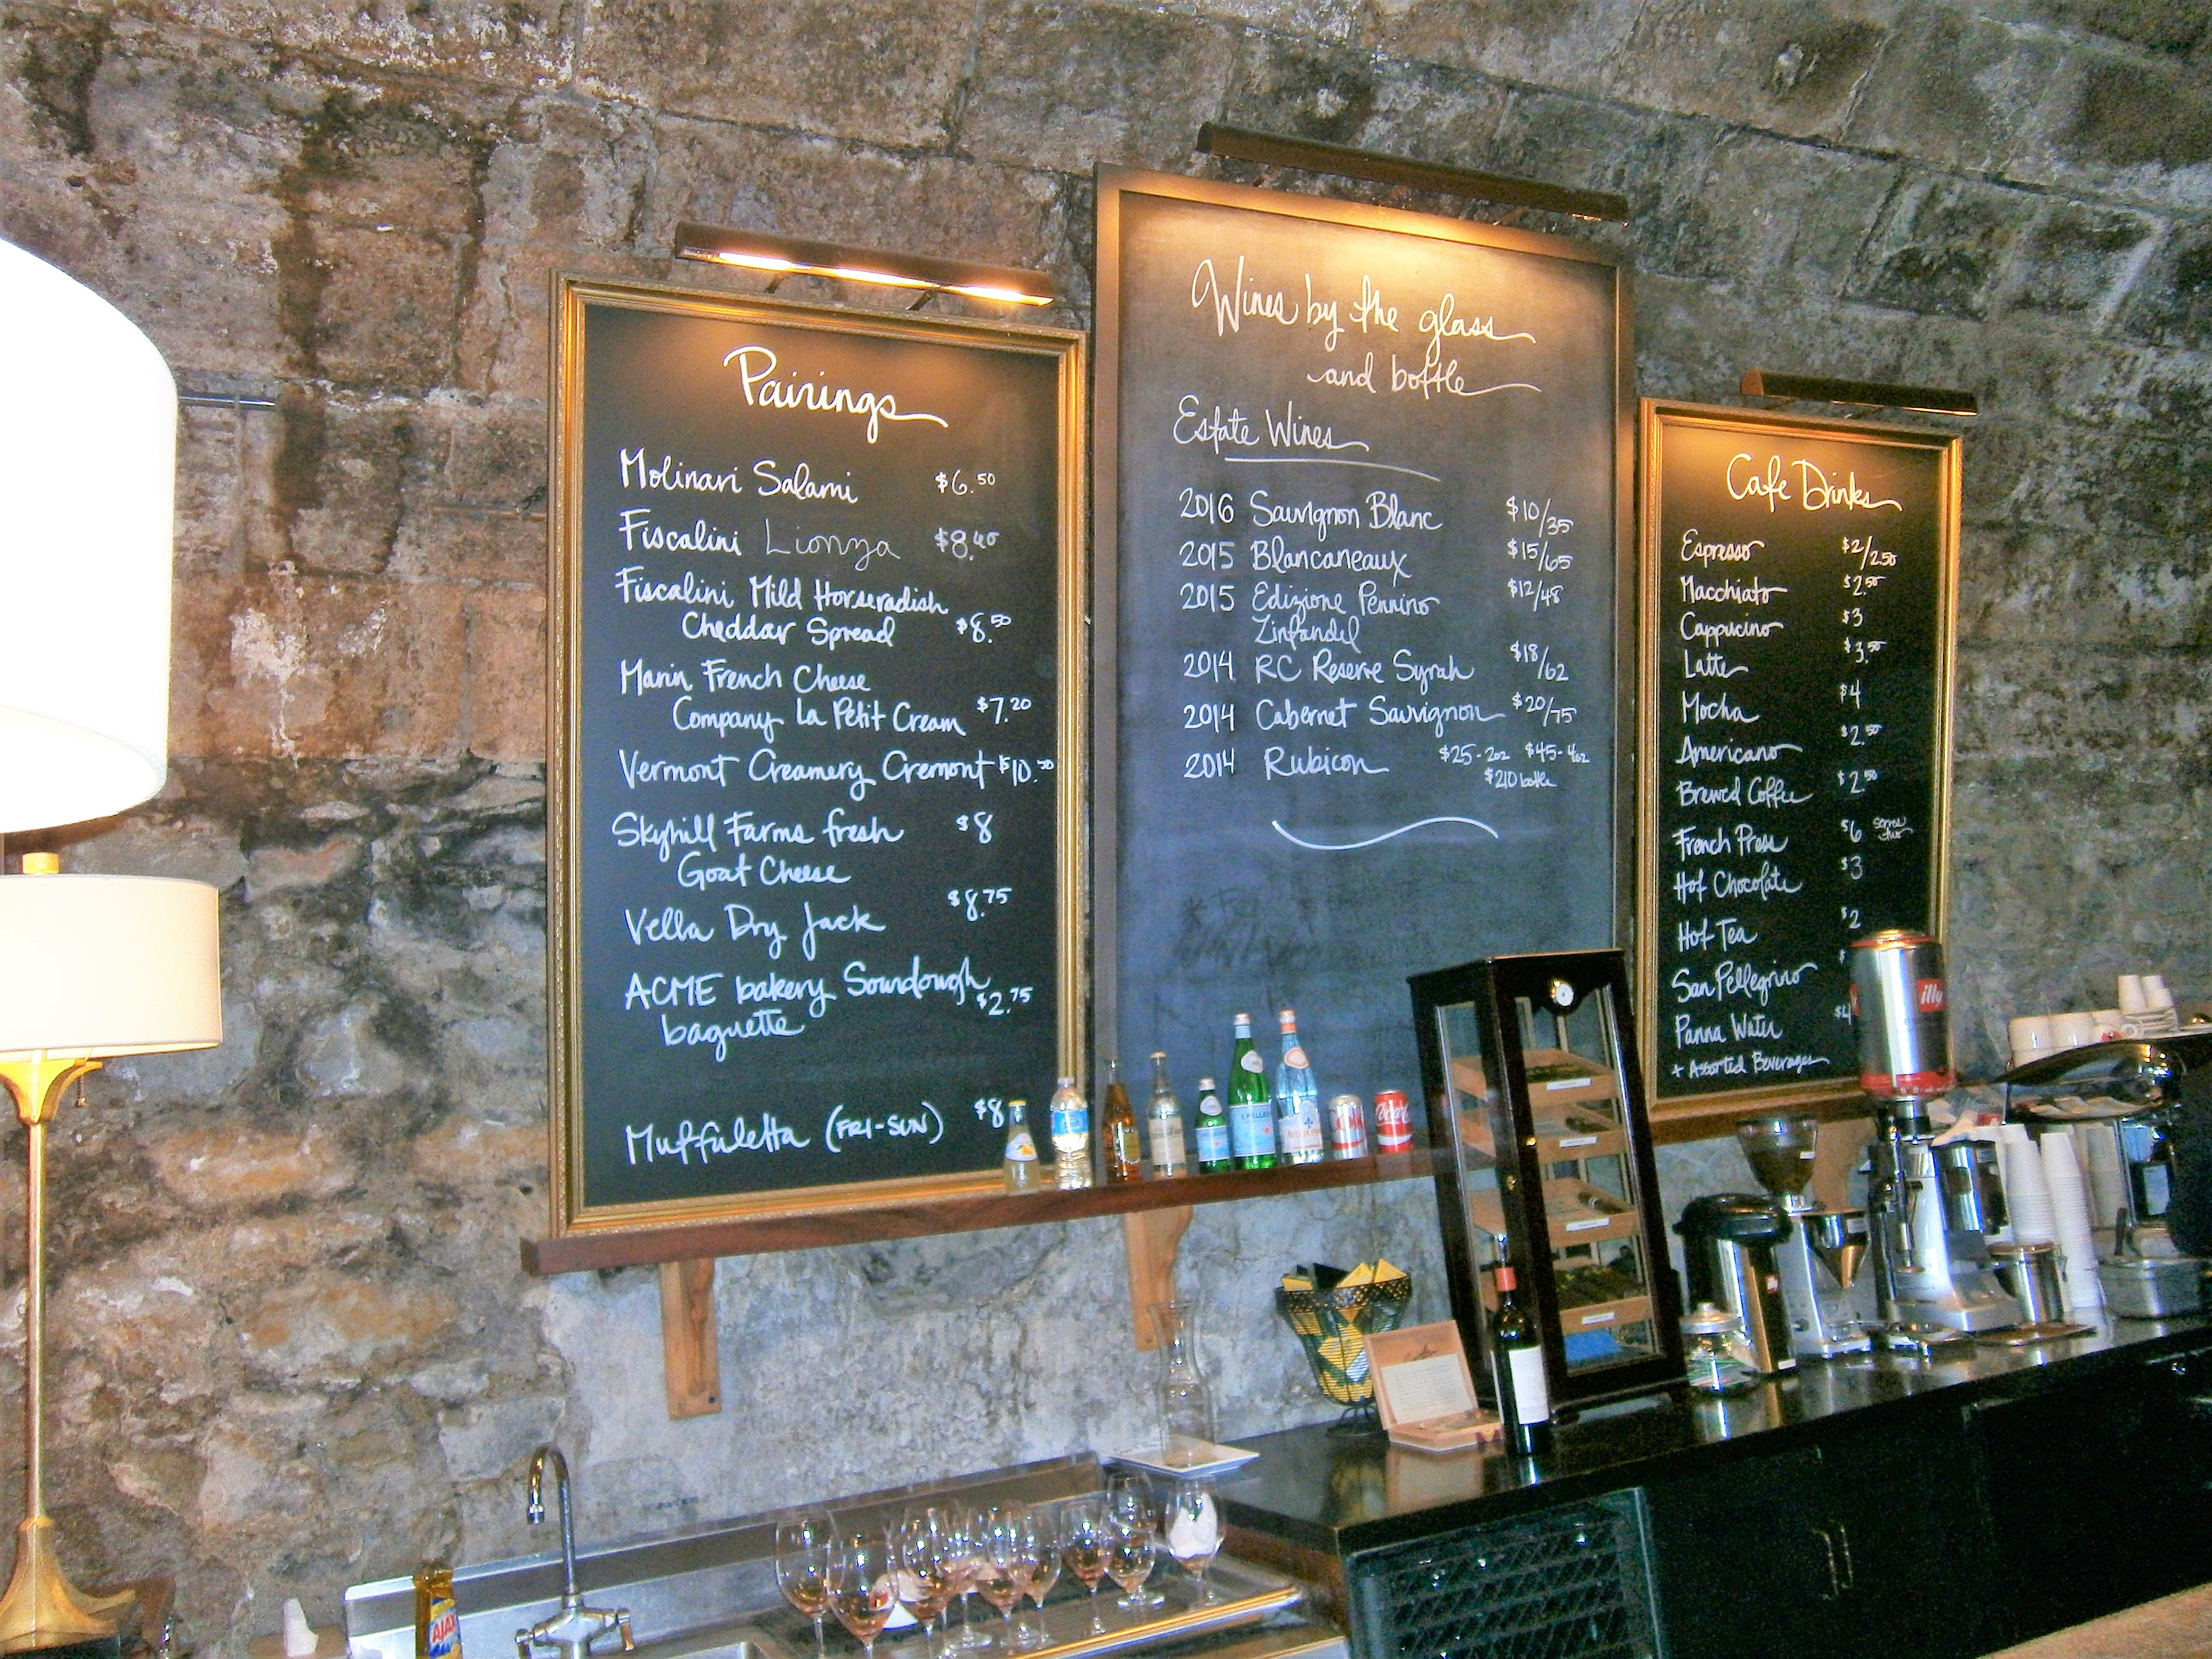 Pairings
Molinari Salami $6.50
Fiscalini Lionza $8.40
Fiscalini Mild Horseradish
Cheddar Spread $8.50
Marin French Cheese
Company La Petit Cream $7.20
Vermont Creamery Cremont $10.50
Skyhill Farms fresh $8
Goat Cheese
Vella Dry Jack $8.75
ACME bakery Sourdough
baguette $2.75
Muffuletta (FRI-SUN) $8
Wines by the glass
and bottle
Estate Wines
2016 Sauvignon Blanc $10/35
2015 Blancaneaux $15/65
2015 Edizione Pennino $12/48
Zinfandel
2014 RC Reserve Syrah $18/62
2014 Cabernet Sauvignon $20/75
2014 Rubicon $25-2oz $45-4oz
$210 bottle
Cafe Drinks
Espresso $2/2.50
Macchiato $2.50
Cappucino $3
Latte $3.50
Mocha $4
Americano $2.50
Brewed Coffee $2.50
French Press $6 serves two
Hot Chocolate $3
Hot Tea $2
San Pellegrino $
Panna Water $4
+ Assorted Beverages
illy
Coca-Cola
AJAX